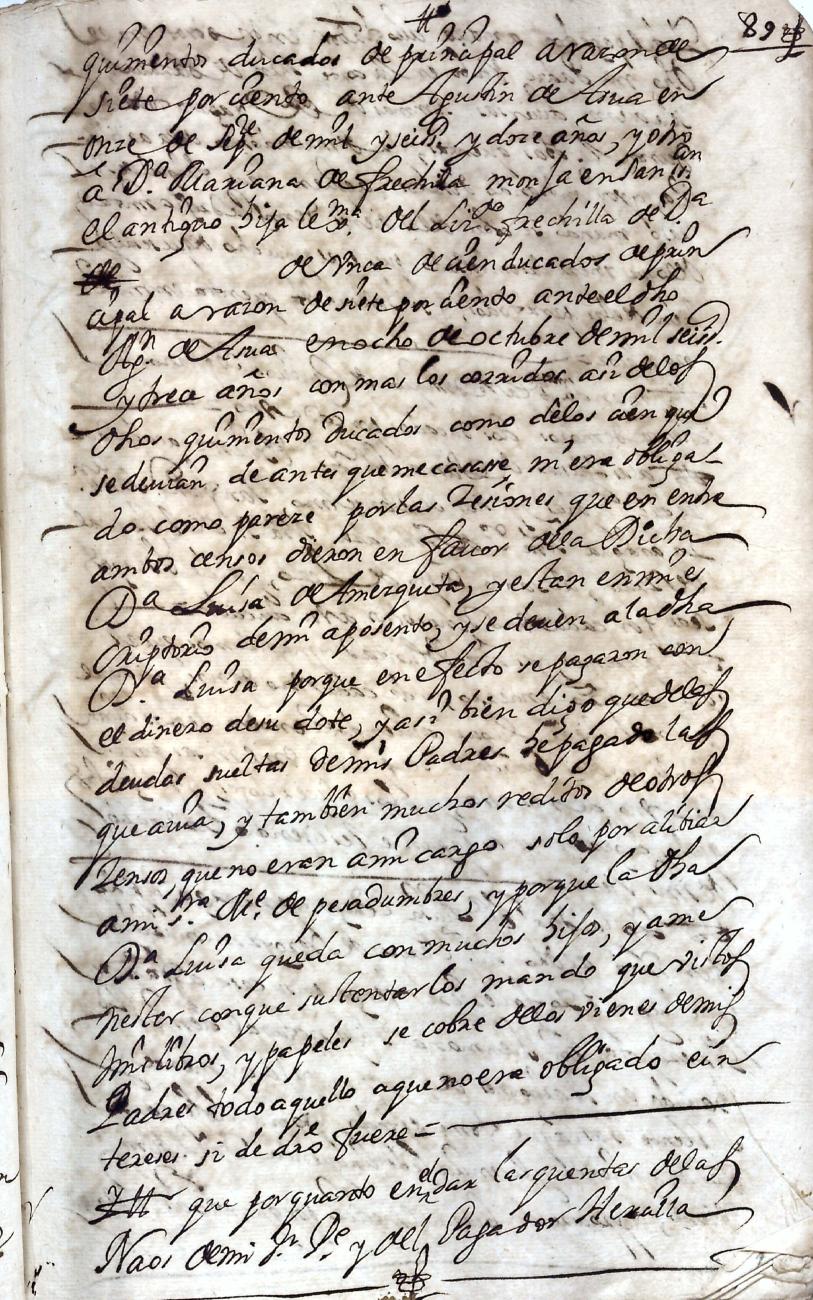 89
quinientos ducados de prinçipal a razon de
siete por çiento ante Agustin de Arua en
onze de sep.e de mil y seis.s y doze años, y otro
a D.a Mariana de frechilla monja en San
el antiguo hija le.ma del Liz.do frechilla de D.a
de Vnca de çien ducados de prin
çipal a razon de siete por çiento ante el dho
Ag.n de Arua en ocho de octubre de mil seis.s
y treçe años con mas los corridos asi delos
dhos quinientos ducados como delos çien que
se deuian de antes que me casasse, ni era obliga-
do como pareze por las Zesiones que en entre
ambos censos dieron en fauor dela Dicha
D.a Luisa de Amezqueta, y estan en mi es
criptorio de mi aposento, y se deuen a la dha
D.a Luisa porque en efecto se pagaron con
el dinero de su dote, y asi bien digo que delas
deudas sueltas de mis Padres he pagado las
que auia, y tambien muchos reditos de otros
Zensos, que no eran a mi cargo solo por aliбiar
a mi s.ra M.e de pesadumbres, y porque la dha
D.a Luisa queda con muchos hijos, y a me
nester con que sustentarlos mando que vistos
mis libros, y papeles se cobre delos vienes de mis
Padres todo aquello a que no era obligado e in
tereses si de dro fuere =
Ytt que por quanto en el dar las quentas delas
Naos de mi s.r P.e y del Pagador Heualla